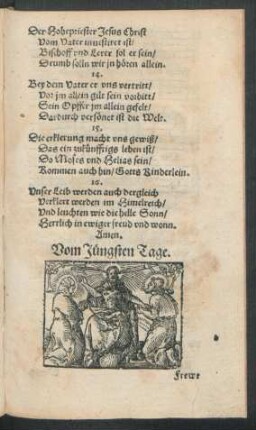 Der Hohepriester Jesus Christ
Vom Vater inuestiret ist/
Bischoff vnd Lerer sol er sein/
Drumb solln wir jn hören allein.
14.
Bey dem Vater er vns vertritt/
Vor jm allein gilt sein vorbitt/
Sein Opffer jm allein gefelt/
Dardurch versönet ist die Welt.
15.
Die erklerung macht vns gewiß/
Das ein zukünfftigs leben ist/
Da Moses vnd Helias sein/
Kommen auch hin/ Gotts Kinderlein.
16.
Vnser Leib werden auch dergleich
Verklert werden im Himelreich/
Vnd leuchten wie die helle Sonn/
Herrlich in ewiger freud vnd wonn.
Amen.
Vom Jüngsten Tage.
Frewt